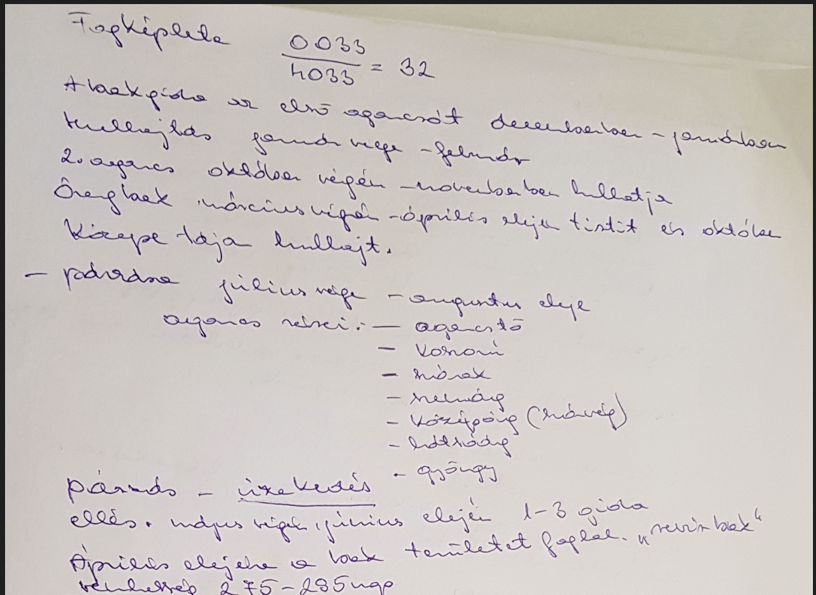 Fogképlete 0033
4033 = 32
A bakgida az első agancsát decemberben - januárban
hullajtás január vége - február
2. agancs október végén - novemberben hullatja
Öreg bak március végén - április elején tisztít és október
közepe tája hullajt.
- párzása július vége - augusztus eleje
agancs részei: - agancstő
- koszorú
- szárak
- szemág
- középág (szárvég)
- hátsóág
- gyöngy
párzás - üzekedés
ellés. május végén, június elején 1-3 gida
Április elejére a bak területet foglal. „revirbak"
vemhesség 275-285 nap